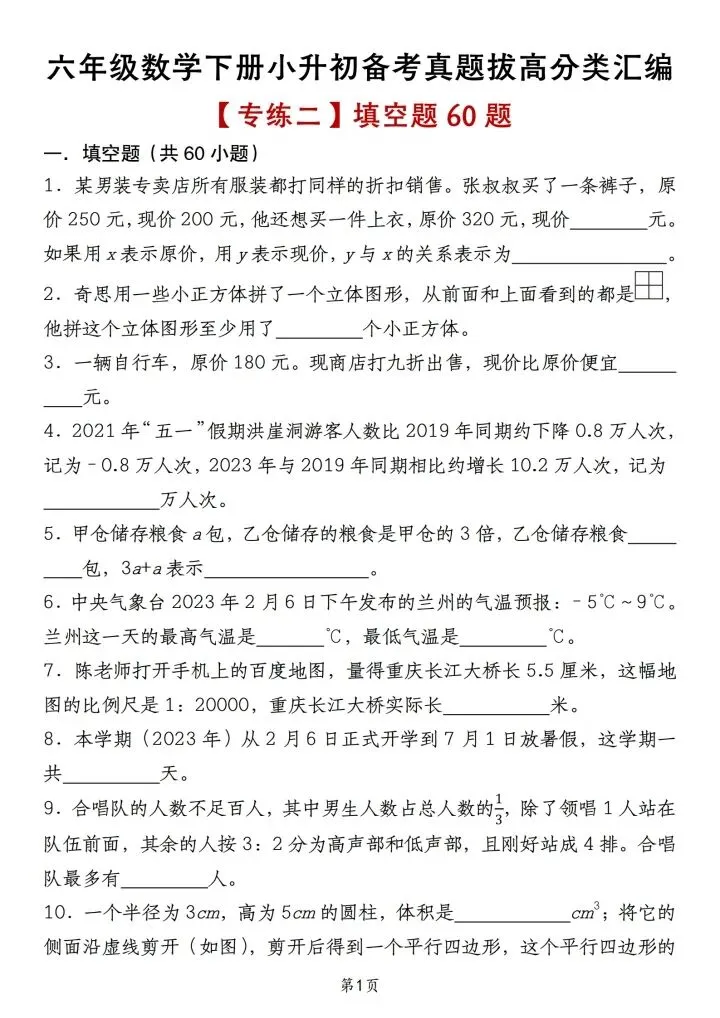 六年级数学下册小升初备考真题拔高分类汇编
【专练二】填空题 60 题
一．填空题（共 60 小题）
1．某男装专卖店所有服装都打同样的折扣销售。张叔叔买了一条裤子，原
价 250 元，现价 200 元，他还想买一件上衣，原价 320 元，现价________元。
如果用 x 表示原价，用 y 表示现价，y 与 x 的关系表示为________________。
2．奇思用一些小正方体拼了一个立体图形，从前面和上面看到的都是，
他拼这个立体图形至少用了_________个小正方体。
3．一辆自行车，原价 180 元。现商店打九折出售，现价比原价便宜______
____元。
4．2021 年“五一”假期洪崖洞游客人数比 2019 年同期约下降 0.8 万人次，
记为﹣0.8 万人次，2023 年与 2019 年同期相比约增长 10.2 万人次，记为
____________万人次。
5．甲仓储存粮食 a 包，乙仓储存的粮食是甲仓的 3 倍，乙仓储存粮食_____
____包，3a+a 表示_________________。
6．中央气象台 2023 年 2 月 6 日下午发布的兰州的气温预报：﹣5℃～9℃。
兰州这一天的最高气温是_______℃，最低气温是_________℃。
7．陈老师打开手机上的百度地图，量得重庆长江大桥长 5.5 厘米，这幅地
图的比例尺是 1：20000，重庆长江大桥实际长___________米。
8．本学期（2023 年）从 2 月 6 日正式开学到 7 月 1 日放暑假，这学期一
共__________天。
9．合唱队的人数不足百人，其中男生人数占总人数的1/3，除了领唱 1 人站在
队伍前面，其余的人按 3：2 分为高声部和低声部，且刚好站成 4 排。合唱
队最多有_________人。
10．一个半径为 3cm，高为 5cm 的圆柱，体积是____________cm³；将它的
侧面沿虚线剪开（如图），剪开后得到一个平行四边形，这个平行四边形的
第1页